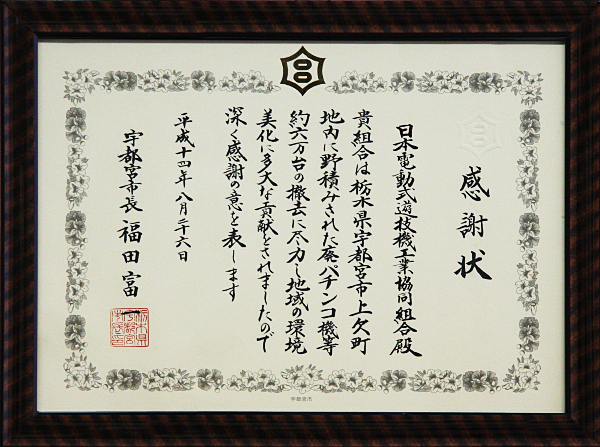 感謝状
日本電動式遊技機工業協同組合殿
貴組合は栃木県宇都宮市上欠町
地内に野積みされた廃パチンコ機等
約六万台の撤去に尽力し地域の環境
美化に多大な貢献をされましたので
深く感謝の意を表します
平成十四年八月二十六日
宇都宮市長 福田富一
宇都宮市